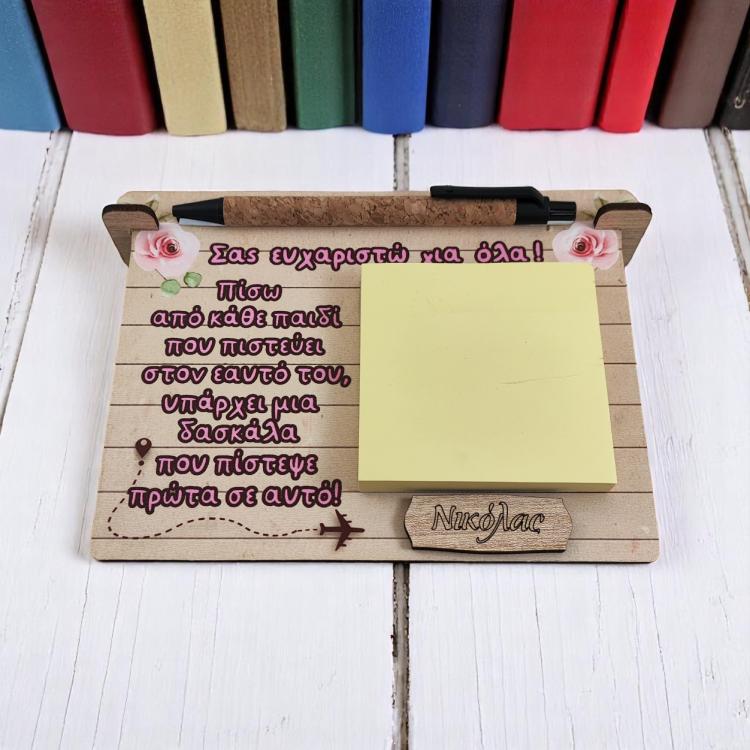 Σας ευχαριστώ για όλα!
Πίσω
από κάθε παιδί
που πιστεύει
στον εαυτό του,
υπάρχει μια
δασκάλα
που πίστεψε
πρώτα σε αυτό!
Νικόλας